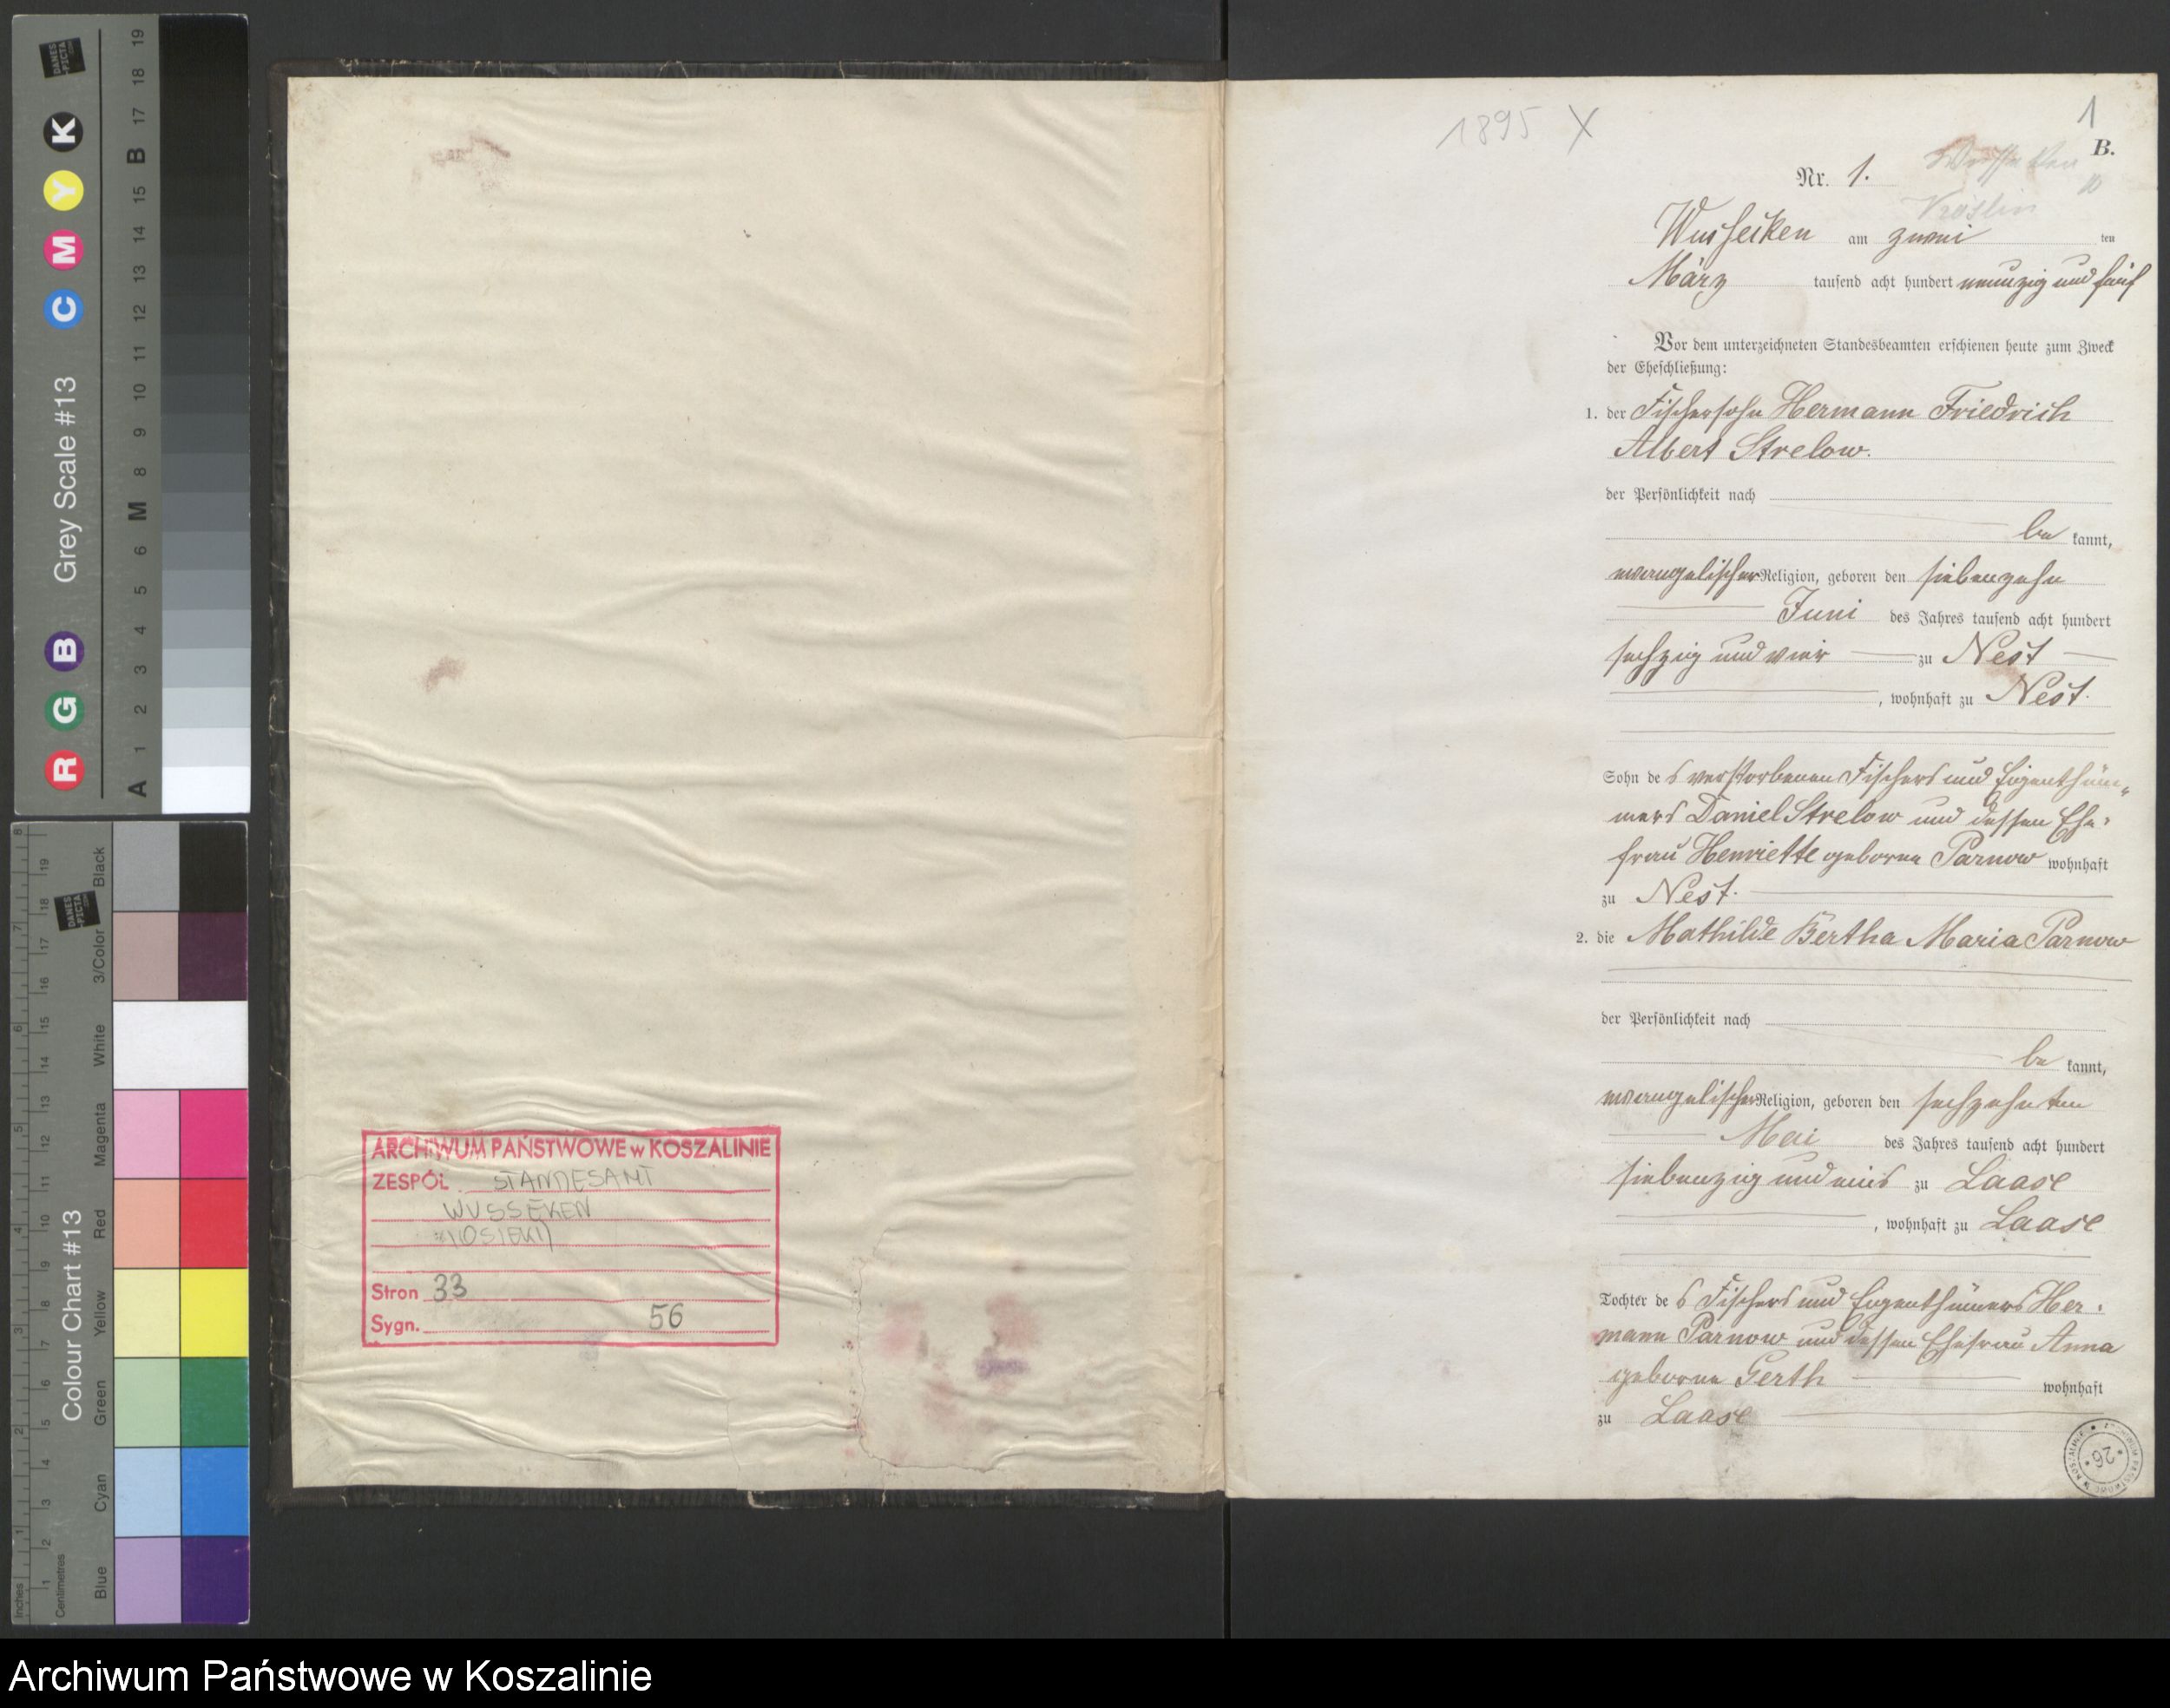 Grey Scale #13
A 1 2 3 4 5 6 M 8 9 10 11 12 13 14 15 B 17 18 19
R G B C M Y K
DANES PICTA .COM
Colour Chart #13
Blue Cyan Green Yellow Red Magenta White 3/Color Black
Inches 1 2 3 4 5 6 7 8
Centimetres 1 2 3 4 5 6 7 8 9 10 11 12 13 14 15 16 17 18 19
DANES PICTA .COM
ARCHIWUM PAŃSTWOWE w KOSZALINIE
ZESPÓŁ STANDESAMT
WUSSEKEN
Stron 33
Sygn. 56
1895 X
1
B.
Nr. 1.
Wusseken
Köslin
Wusseken am zwei ten
März tausend acht hundert neunzig und fünf
Vor dem unterzeichneten Standesbeamten erschienen heute zum Zweck
der Eheschließung:
1. der Fischersohn Hermann Friedrich
Albert Strelow.
der Persönlichkeit nach
be kannt,
evangelischer Religion, geboren den siebenzehn
Juni des Jahres tausend acht hundert
sechzig und vier zu Nest
, wohnhaft zu Nest.
Sohn des verstorbenen Fischers und Eigenthüm„
mers Daniel Strelow und dessen Ehe-
frau Henriette geborne Parnow wohnhaft
zu Nest.
2. die Mathilde Bertha Maria Parnow
der Persönlichkeit nach
be kannt,
evangelischer Religion, geboren den sechzehnten
Mai des Jahres tausend acht hundert
siebenzig und eins zu Laase
, wohnhaft zu Laase
Tochter des Fischers und Eigenthümers Her-
mann Parnow und dessen Ehefrau Anna
geborne Gerth wohnhaft
zu Laase
ARCHIWUM PAŃSTWOWE W KOSZALINIE
26
Archiwum Państwowe w Koszalinie